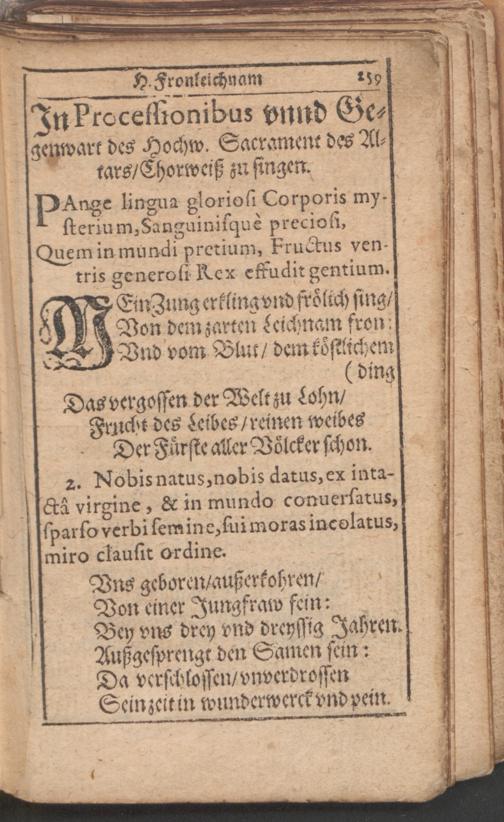 H. Fronleichnam 259
In Processionibus vnnd Ge-
genwart des Hochw. Sacrament des Al-
tars/Chorweiß zu singen.
PAnge lingua gloriosi Corporis my-
sterium, Sanguinisquè preciosi,
Quem in mundi pretium, Fructus ven-
tris generosi Rex effudit gentium.
MEin Zung erkling vnd frölich sing/
Von dem zarten Leichnam fron:
Vnd vom Blut/ dem köstlichem
( ding
Das vergossen der Welt zu Lohn/
Frucht des Leibes/reinen weibes
Der Fürste aller Völcker schon.
2. Nobis natus, nobis datus, ex inta-
ctâ virgine, & in mundo conuersatus,
sparso verbi semine, sui moras incolatus,
miro clausit ordine.
Vns geboren/außerkohren/
Von einer Jungfraw fein:
Bey vns drey vnd dreyssig Jahren.
Außgesprengt den Samen sein:
Da verschlossen/vnverdrossen
Sein zeit in wunderwerck vnd pein.